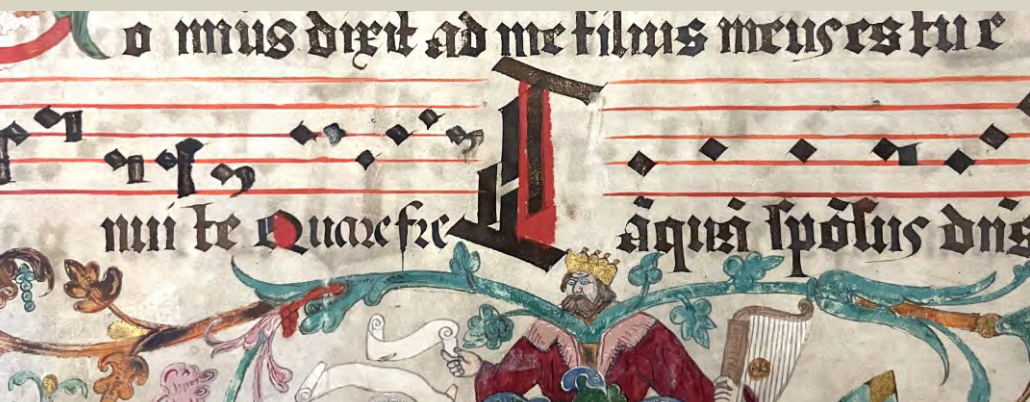 o minus dixit ad me filius meus es tu e
nui te Quare fre T
āquā spōsus dn̄s